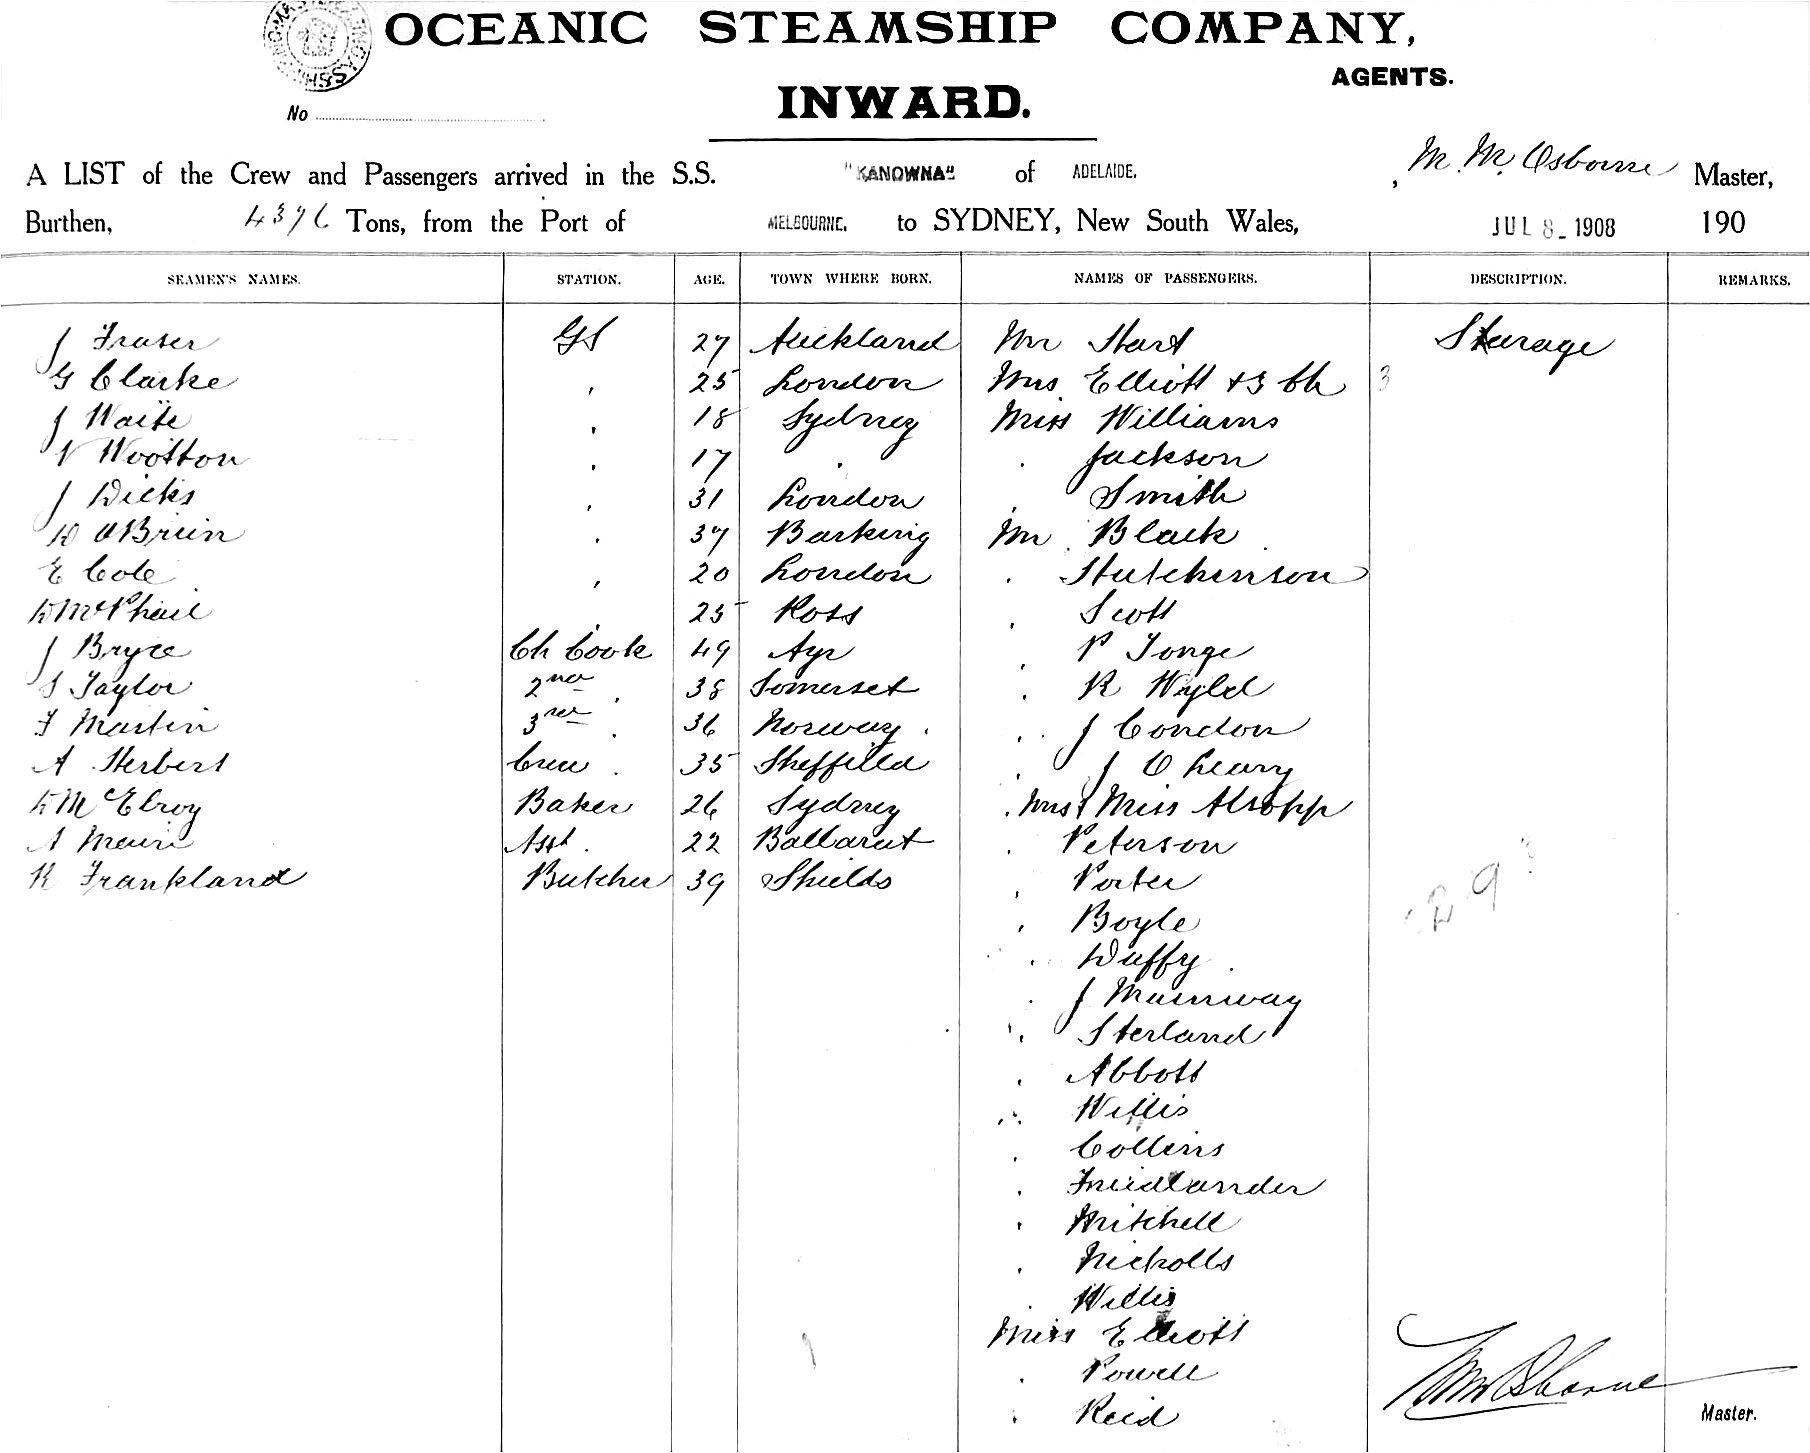 OCEANIC STEAMSHIP COMPANY,
AGENTS.
INWARD.
No
A LIST of the Crew and Passengers arrived in the S.S. "KANOWNA" of ADELAIDE. , M. M. Osborne Master,
Burthen, 4376 Tons, from the Port of MELBOURNE. to SYDNEY, New South Wales, JUL 8_ 1908 190
SEAMEN'S NAMES. STATION. AGE. TOWN WHERE BORN. NAMES OF PASSENGERS. DESCRIPTION. REMARKS.
J Fraser GS 27 Auckland Mr Hart Sterage
G Clarke " 25 London Mrs Elliott + 3 Ch 3
J Waite " 18 Sydney Miss Williams
N Wootton " 17 " " Jackson
J Dicks " 31 London " Smith
D OBrien " 37 Barking Mr Black
E Cole " 20 London " Hutchinson
D McPhail " 25 Ross " Scott
J Bryce Ch Cook 49 Ayr " P Tonge
S Taylor 2nd " 38 Somerset " R Wyld
F Martin 3rd " 36 Norway " J Condon
A Herbert Crew 35 Sheffield " J O Leary
D McElroy Baker 26 Sydney Miss Alsopp
A Asst 22 Ballarat " Peterson
R Frankland Butcher 39 Shields " Porter
" Boyle
" Duffy
29
" J
" Sterland
" Abbott
" Willis
" Collins
" Friedlander
" Mitchell
" Nicholls
" Willis
Miss Elliott
" Powell
" Reid
M M Osborne
Master.